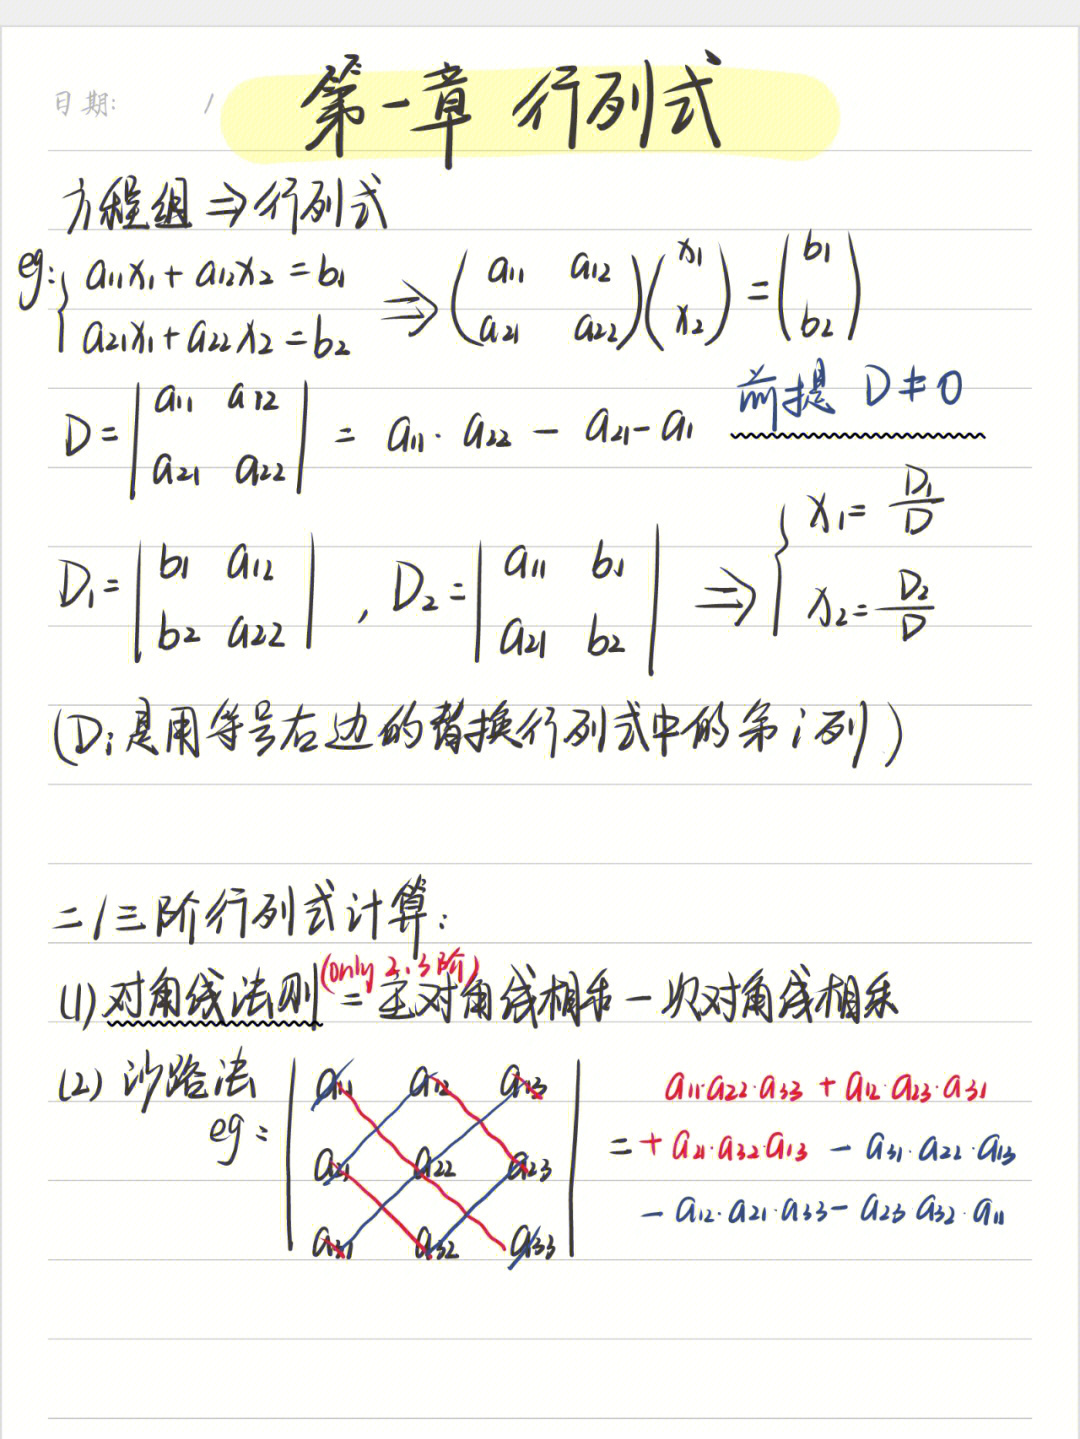 日期: /
第一章 行列式
方程组 ⇒ 行列式
eg: { a11x1 + a12x2 = b1
a21x1 + a22x2 = b2 ⇒ (a11 a12
a21 a22) (x1
x2) = (b1
b2)
D = | a11 a12
a21 a22 | = a11 · a22 − a21 − a1 前提 D ≠ 0
D1 = | b1 a12
b2 a22 | , D2 = | a11 b1
a21 b2 | ⇒ { x1 = D1/D
x2 = D2/D
(Di是用等号右边的替换行列式中的第i列)
二/三阶行列式计算:
(1) 对角线法则 (only 2、3阶) = 主对角线相乘 − 次对角线相乘
(2) 沙路法
eg: | a11 a12 a13
a21 a22 a23
a31 a32 a33 |
a11·a22·a33 + a12·a23·a31
= + a21·a32·a13 − a31·a22·a13
− a12·a21·a33 − a23·a32·a11